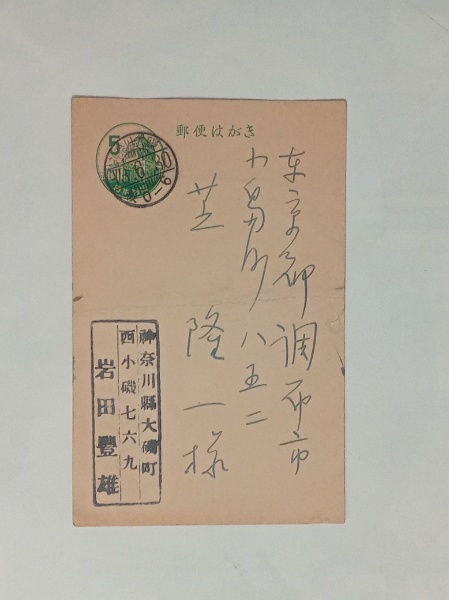 郵便はがき
5
東京都調布市
八五二
芝 隆一様
神奈川縣大磯町
西小磯七六九
岩田豊雄